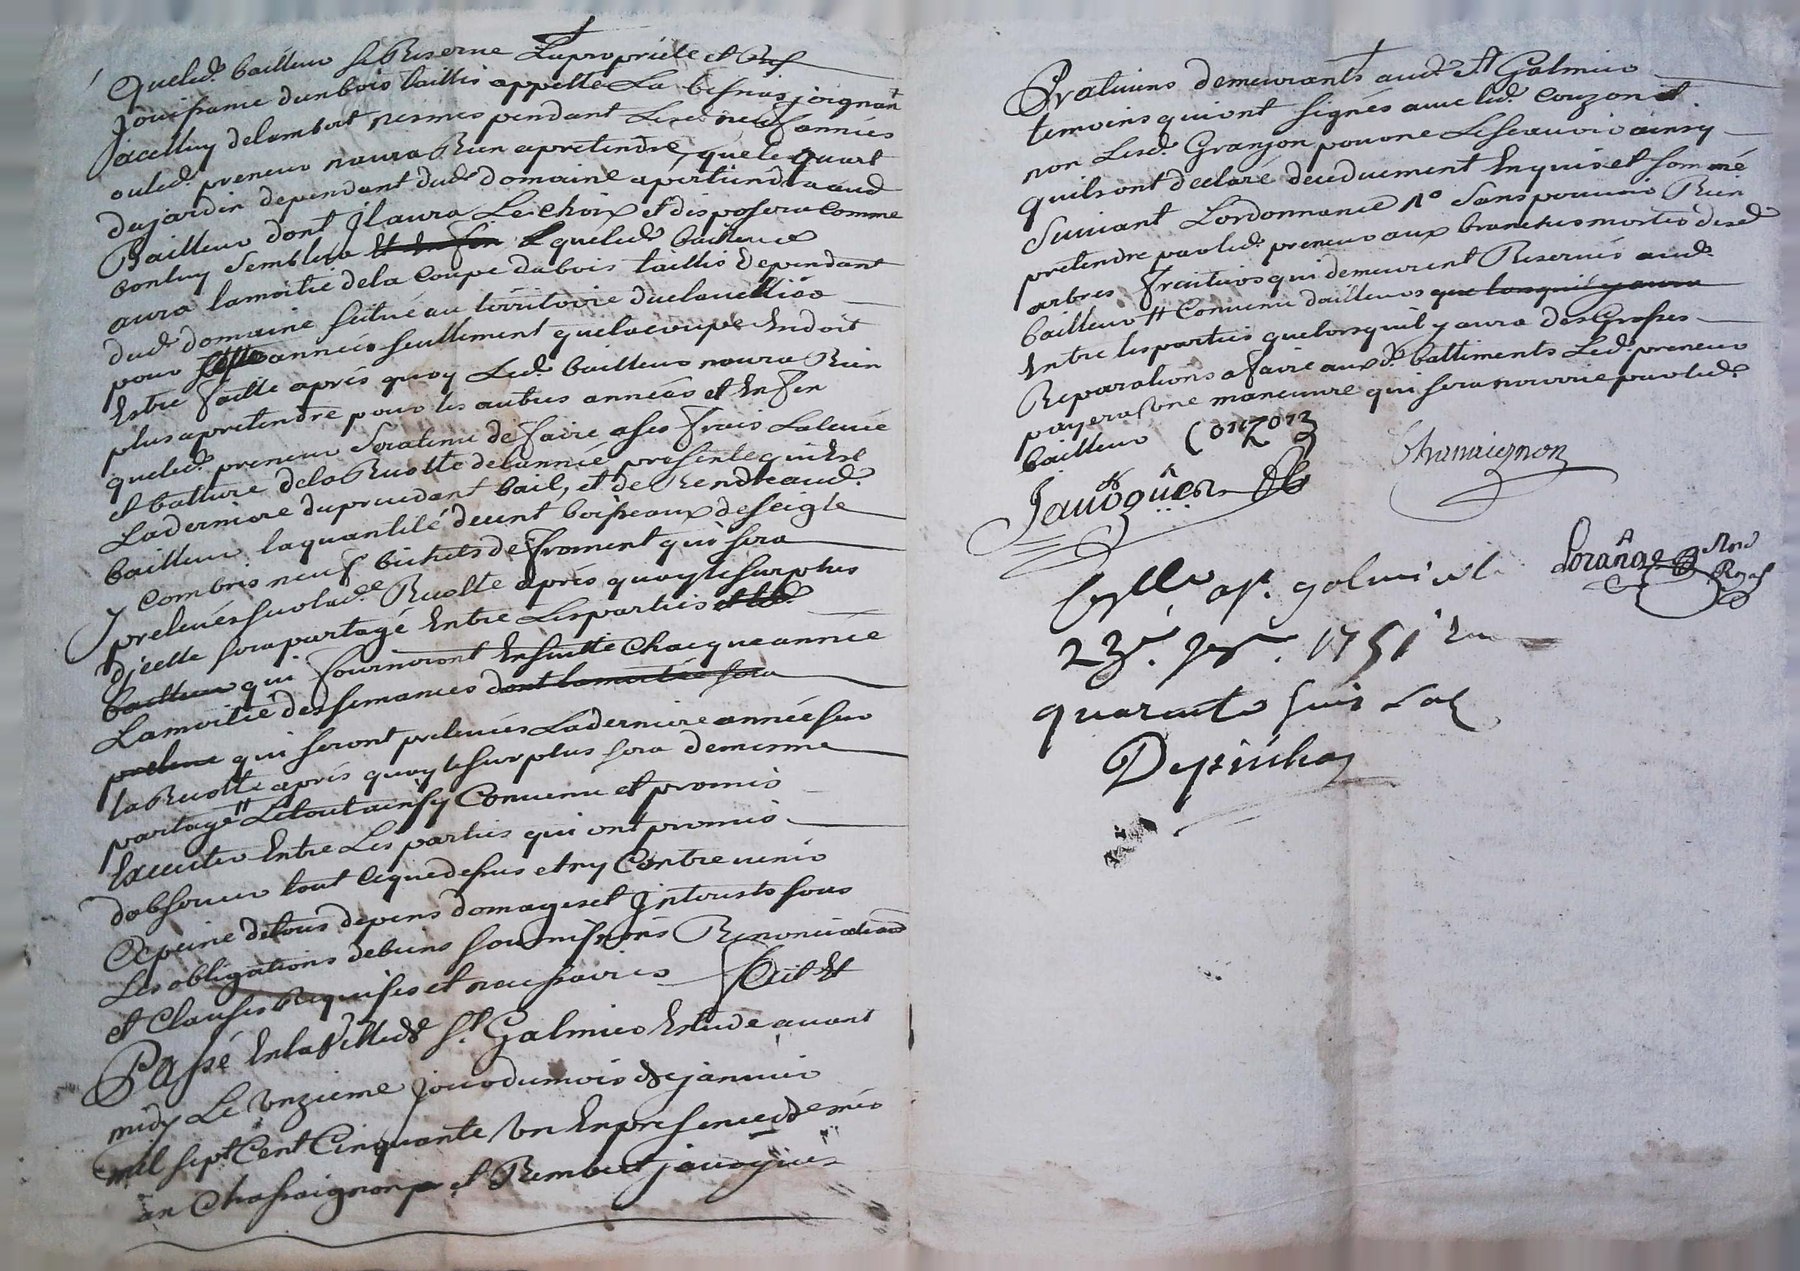 Queled. bailleur se Reserve Lapropriété et
Jouissance dunbois taillis appellé La besnas joignant
acelluy delambert pendant Lesd. neuf années
ouled. preneur naura Rien apretendre, quele quart
dujardin dependant dud. domaine apartiendra aud
Bailleur dont Jlaura Lechoix et disposera comme
bonluy semblera et Enfin queled. bailleur
aura lamoitié dela coupe dubois taillis dependant
dud. domaine scitué au territoire
pour années seullement quelacoupe Endoit
Estre faitte aprés quoy Led. bailleur naura Rien
plus apretendre pour les autres années et Enfin
queled. preneur Seratenu de faire ases frais Lalevée
et batture dela Recolte delannée presente qui Est
Laderniere duprecedant bail, et de Rendre aud.
bailleur laquantité decent boisseaux deseigle
y Compris neuf bichets de froment qui sera
prelevés surlad.e Recolte aprés quoy le surplus
dJcelle sera partagé Entre Lesparties et led.
bailleur qui fourniront Ensuitte Chacque année
Lamoitié des semances dont lamoitiée sera
qui seront prelevées Laderniere année sur
la Recolte aprés quoy le surplus sera demesme
partagé Letout ainsy Convenu et promis
Executer Entre Les parties qui ont promis
dobserver tout cequedessus et ny Contrevenir
Apeine detous depens domages et Jnterests sous
Les obligations debiens soumissions Renonciations
et Clauses Requises et necessaires fait Et
Passé Enlaville de St. Galmier Estude avant
midy Le Unzieme jour dumois de janvier
mil sept Cent Cinquante Un Enpresence de
an Chassaignon et Rembert javogues
Praticiens demeurants aud. St Galmier
temoins quiont signés avec led. couzon et
non Lesd. Granjon pour ne Le scavoir ainsy
quilsont déclaré deceduement Enquis et sommé
Suivant Lordonnance Sans pouvoir Rien
pretendre par led. preneur aux branches mortes desd
arbres fruitiers qui demeurent Reservés aud.
bailleur Convenu dailleurs que lorsquil y aura
Entre les parties que lorsquil y aura des Grosses
Reparations afaire auxd. battiments Led. preneur
payera une maneuvre qui sera nourrie par led.
bailleur Couzon
Chassaignon
Javogues
Lorange Nore
Royal
a St. galmier le
23e. 1751
quarante huit sols
Depinhac